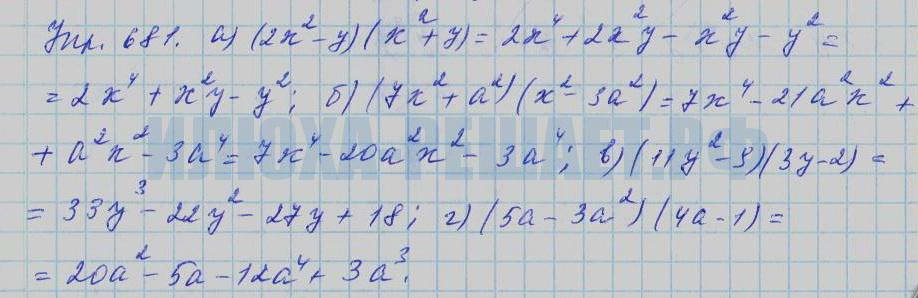 Упр. 681. а) (2x² - y)(x² + y) = 2x⁴ + 2x²y - x²y - y² =
= 2x⁴ + x²y - y²; б) (7x² + a²)(x² - 3a²) = 7x⁴ - 21a²x² +
+ a²x² - 3a⁴ = 7x⁴ - 20a²x² - 3a⁴; в) (11y² - 9)(3y - 2) =
ИЛЮХА-РЕШАЕТ.РФ
= 33y³ - 22y² - 27y + 18; г) (5a - 3a²)(4a - 1) =
= 20a² - 5a - 12a⁴ + 3a³.